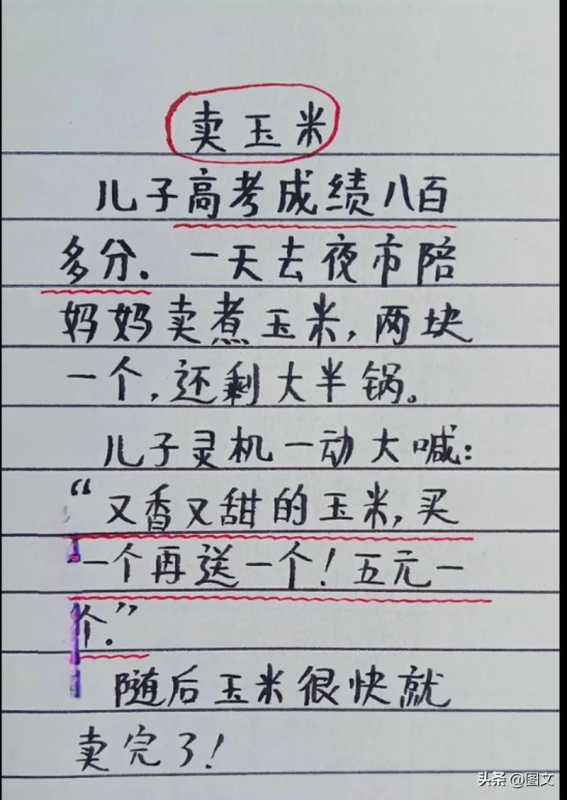 卖玉米
儿子高考成绩八百
多分. 一天去夜市陪
妈妈卖煮玉米, 两块
一个, 还剩大半锅。
儿子灵机一动大喊:
“又香又甜的玉米, 买
一个再送一个! 五元一
个.”
随后玉米很快就
卖完了!
头条 @图文